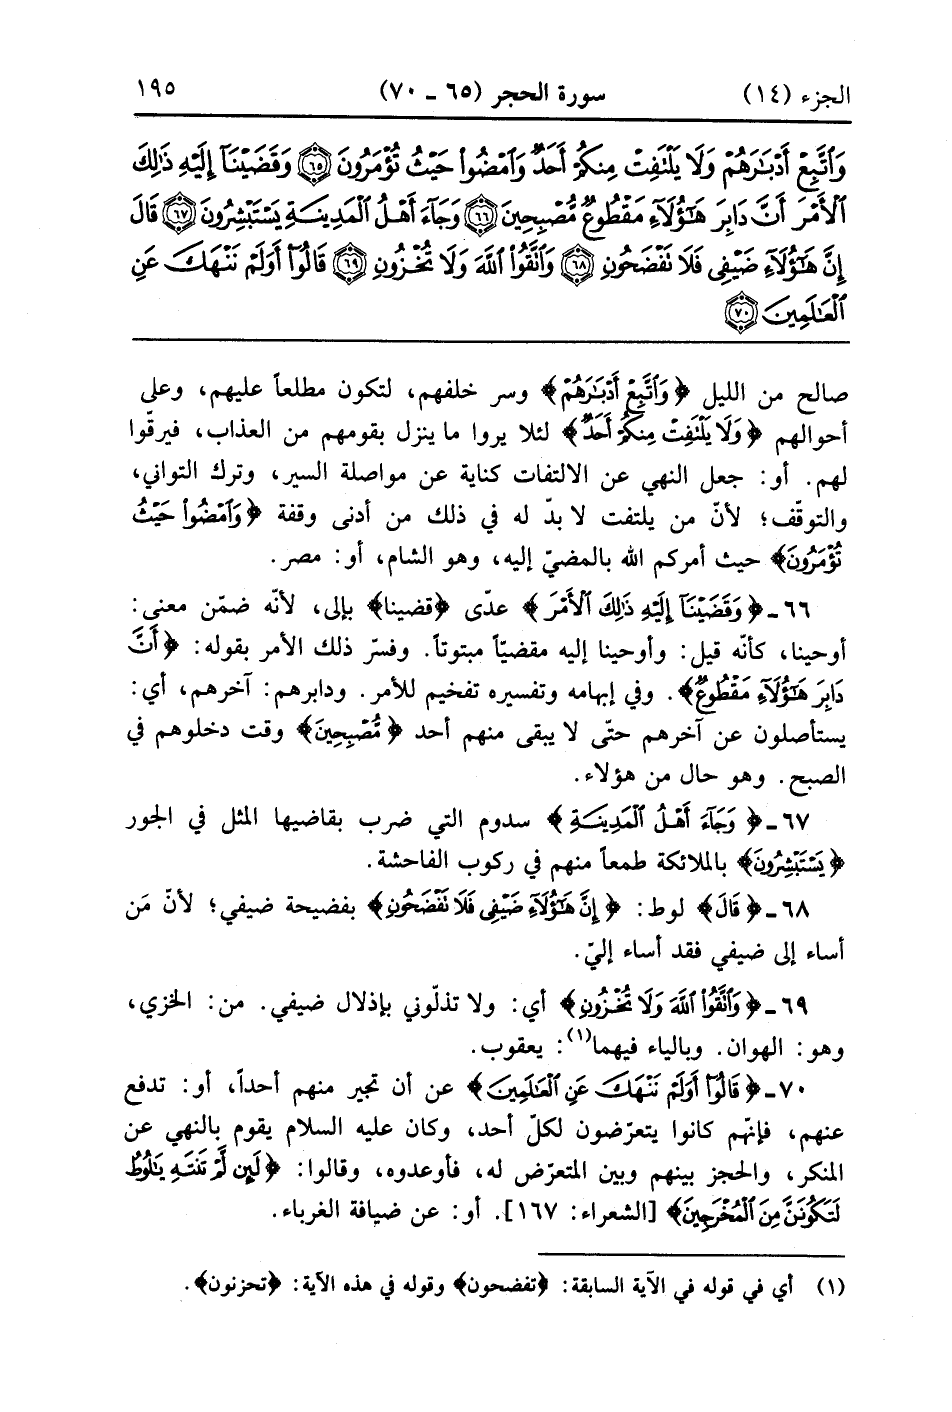 الجزء (١٤) سورة الحجر (٦٥ ـ ٧٠) ١٩٥
وَٱتَّبِعْ أَدْبَٰرَهُمْ وَلَا يَلْتَفِتْ مِنكُمْ أَحَدٌ وَٱمْضُوا۟ حَيْثُ تُؤْمَرُونَ ۝٦٥ وَقَضَيْنَآ إِلَيْهِ ذَٰلِكَ
ٱلْأَمْرَ أَنَّ دَابِرَ هَٰٓؤُلَآءِ مَقْطُوعٌ مُّصْبِحِينَ ۝٦٦ وَجَآءَ أَهْلُ ٱلْمَدِينَةِ يَسْتَبْشِرُونَ ۝٦٧ قَالَ
إِنَّ هَٰٓؤُلَآءِ ضَيْفِى فَلَا تَفْضَحُونِ ۝٦٨ وَٱتَّقُوا۟ ٱللَّهَ وَلَا تُخْزُونِ ۝٦٩ قَالُوٓا۟ أَوَلَمْ نَنْهَكَ عَنِ
ٱلْعَٰلَمِينَ ۝٧٠
صالح من الليل ﴿وَٱتَّبِعْ أَدْبَٰرَهُمْ﴾ وسر خلفهم، لتكون مطلعاً عليهم، وعلى
أحوالهم ﴿وَلَا يَلْتَفِتْ مِنكُمْ أَحَدٌ﴾ لئلا يروا ما ينزل بقومهم من العذاب، فيرقّوا
لهم. أو: جعل النهي عن الالتفات كناية عن مواصلة السير، وترك التواني،
والتوقّف؛ لأنّ من يلتفت لا بدّ له في ذلك من أدنى وقفة ﴿وَٱمْضُوا۟ حَيْثُ
تُؤْمَرُونَ﴾ حيث أمركم الله بالمضيّ إليه، وهو الشام، أو: مصر.
٦٦ ـ ﴿وَقَضَيْنَآ إِلَيْهِ ذَٰلِكَ ٱلْأَمْرَ﴾ عدّى ﴿قضينا﴾ بإلى، لأنّه ضمّن معنى:
أوحينا، كأنّه قيل: وأوحينا إليه مقضيّاً مبتوتاً. وفسّر ذلك الأمر بقوله: ﴿أَنَّ
دَابِرَ هَٰٓؤُلَآءِ مَقْطُوعٌ﴾. وفي إبهامه وتفسيره تفخيم للأمر. ودابرهم: آخرهم، أي:
يستأصلون عن آخرهم حتّى لا يبقى منهم أحد ﴿مُّصْبِحِينَ﴾ وقت دخلوهم في
الصبح. وهو حال من هؤلاء.
٦٧ ـ ﴿وَجَآءَ أَهْلُ ٱلْمَدِينَةِ﴾ سدوم التي ضرب بقاضيها المثل في الجور
﴿يَسْتَبْشِرُونَ﴾ بالملائكة طمعاً منهم في ركوب الفاحشة.
٦٨ ـ ﴿قَالَ﴾ لوط: ﴿إِنَّ هَٰٓؤُلَآءِ ضَيْفِى فَلَا تَفْضَحُونِ﴾ بفضيحة ضيفي؛ لأنّ مَن
أساء إلى ضيفي فقد أساء إليّ.
٦٩ ـ ﴿وَٱتَّقُوا۟ ٱللَّهَ وَلَا تُخْزُونِ﴾ أي: ولا تذلّوني بإذلال ضيفي. من: الخزي،
وهو: الهوان. وبالياء فيهما(١): يعقوب.
٧٠ ـ ﴿قَالُوٓا۟ أَوَلَمْ نَنْهَكَ عَنِ ٱلْعَٰلَمِينَ﴾ عن أن تجير منهم أحداً، أو: تدفع
عنهم، فإنّهم كانوا يتعرّضون لكلّ أحد، وكان عليه السلام يقوم بالنهي عن
المنكر، والحجز بينهم وبين المتعرّض له، فأوعدوه، وقالوا: ﴿لَئِن لَّمْ تَنتَهِ يَٰلُوطُ
لَتَكُونَنَّ مِنَ ٱلْمُخْرَجِينَ﴾ [الشعراء: ١٦٧]. أو: عن ضيافة الغرباء.
(١) أي في قوله في الآية السابقة: ﴿تفضحون﴾ وقوله في هذه الآية: ﴿تحزنون﴾.